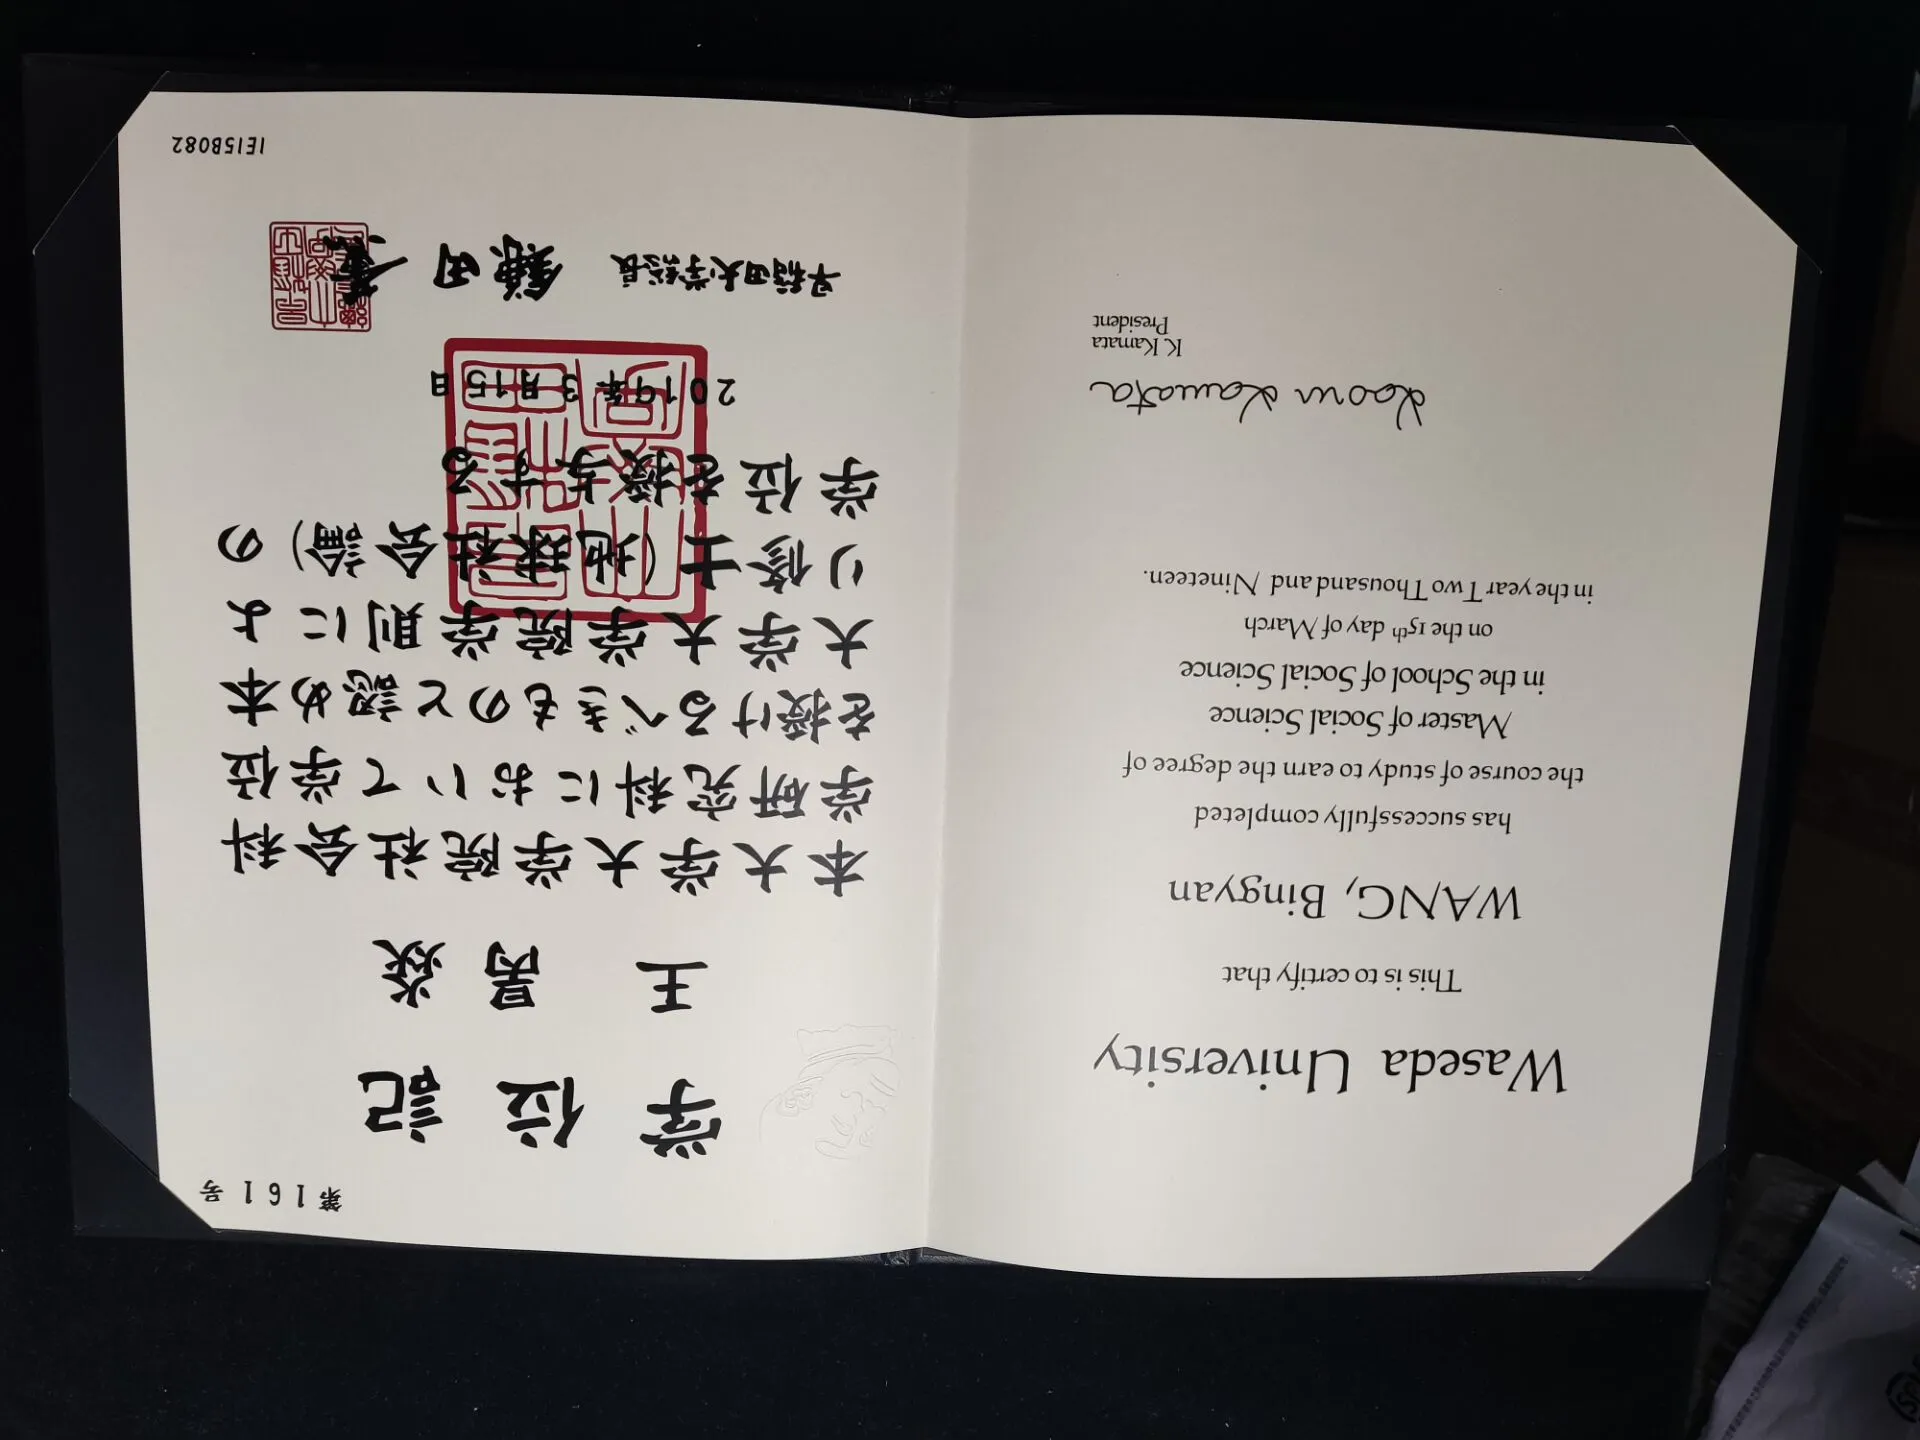 Waseda University
This is to certify that
WANG, Bingyan
has successfully completed
the course of study to earn the degree of
Master of Social Science
in the School of Social Science
on the 15th day of March
in the year Two Thousand and Nineteen.
Kaoru Kamata
K. Kamata
President
第161号
学位記
王 昺焱
本大学大学院社会科
学研究科において学位
を授けるべきものと認め本
大学大学院学則によ
り修士(地球社会論)の
学位を授与する
2019年3月15日
早稲田大学総長 鎌田 薫
1E15B082